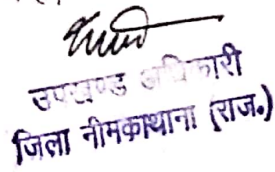 उपखण्ड अधिकारी
जिला नीमकाथाना (राज.)